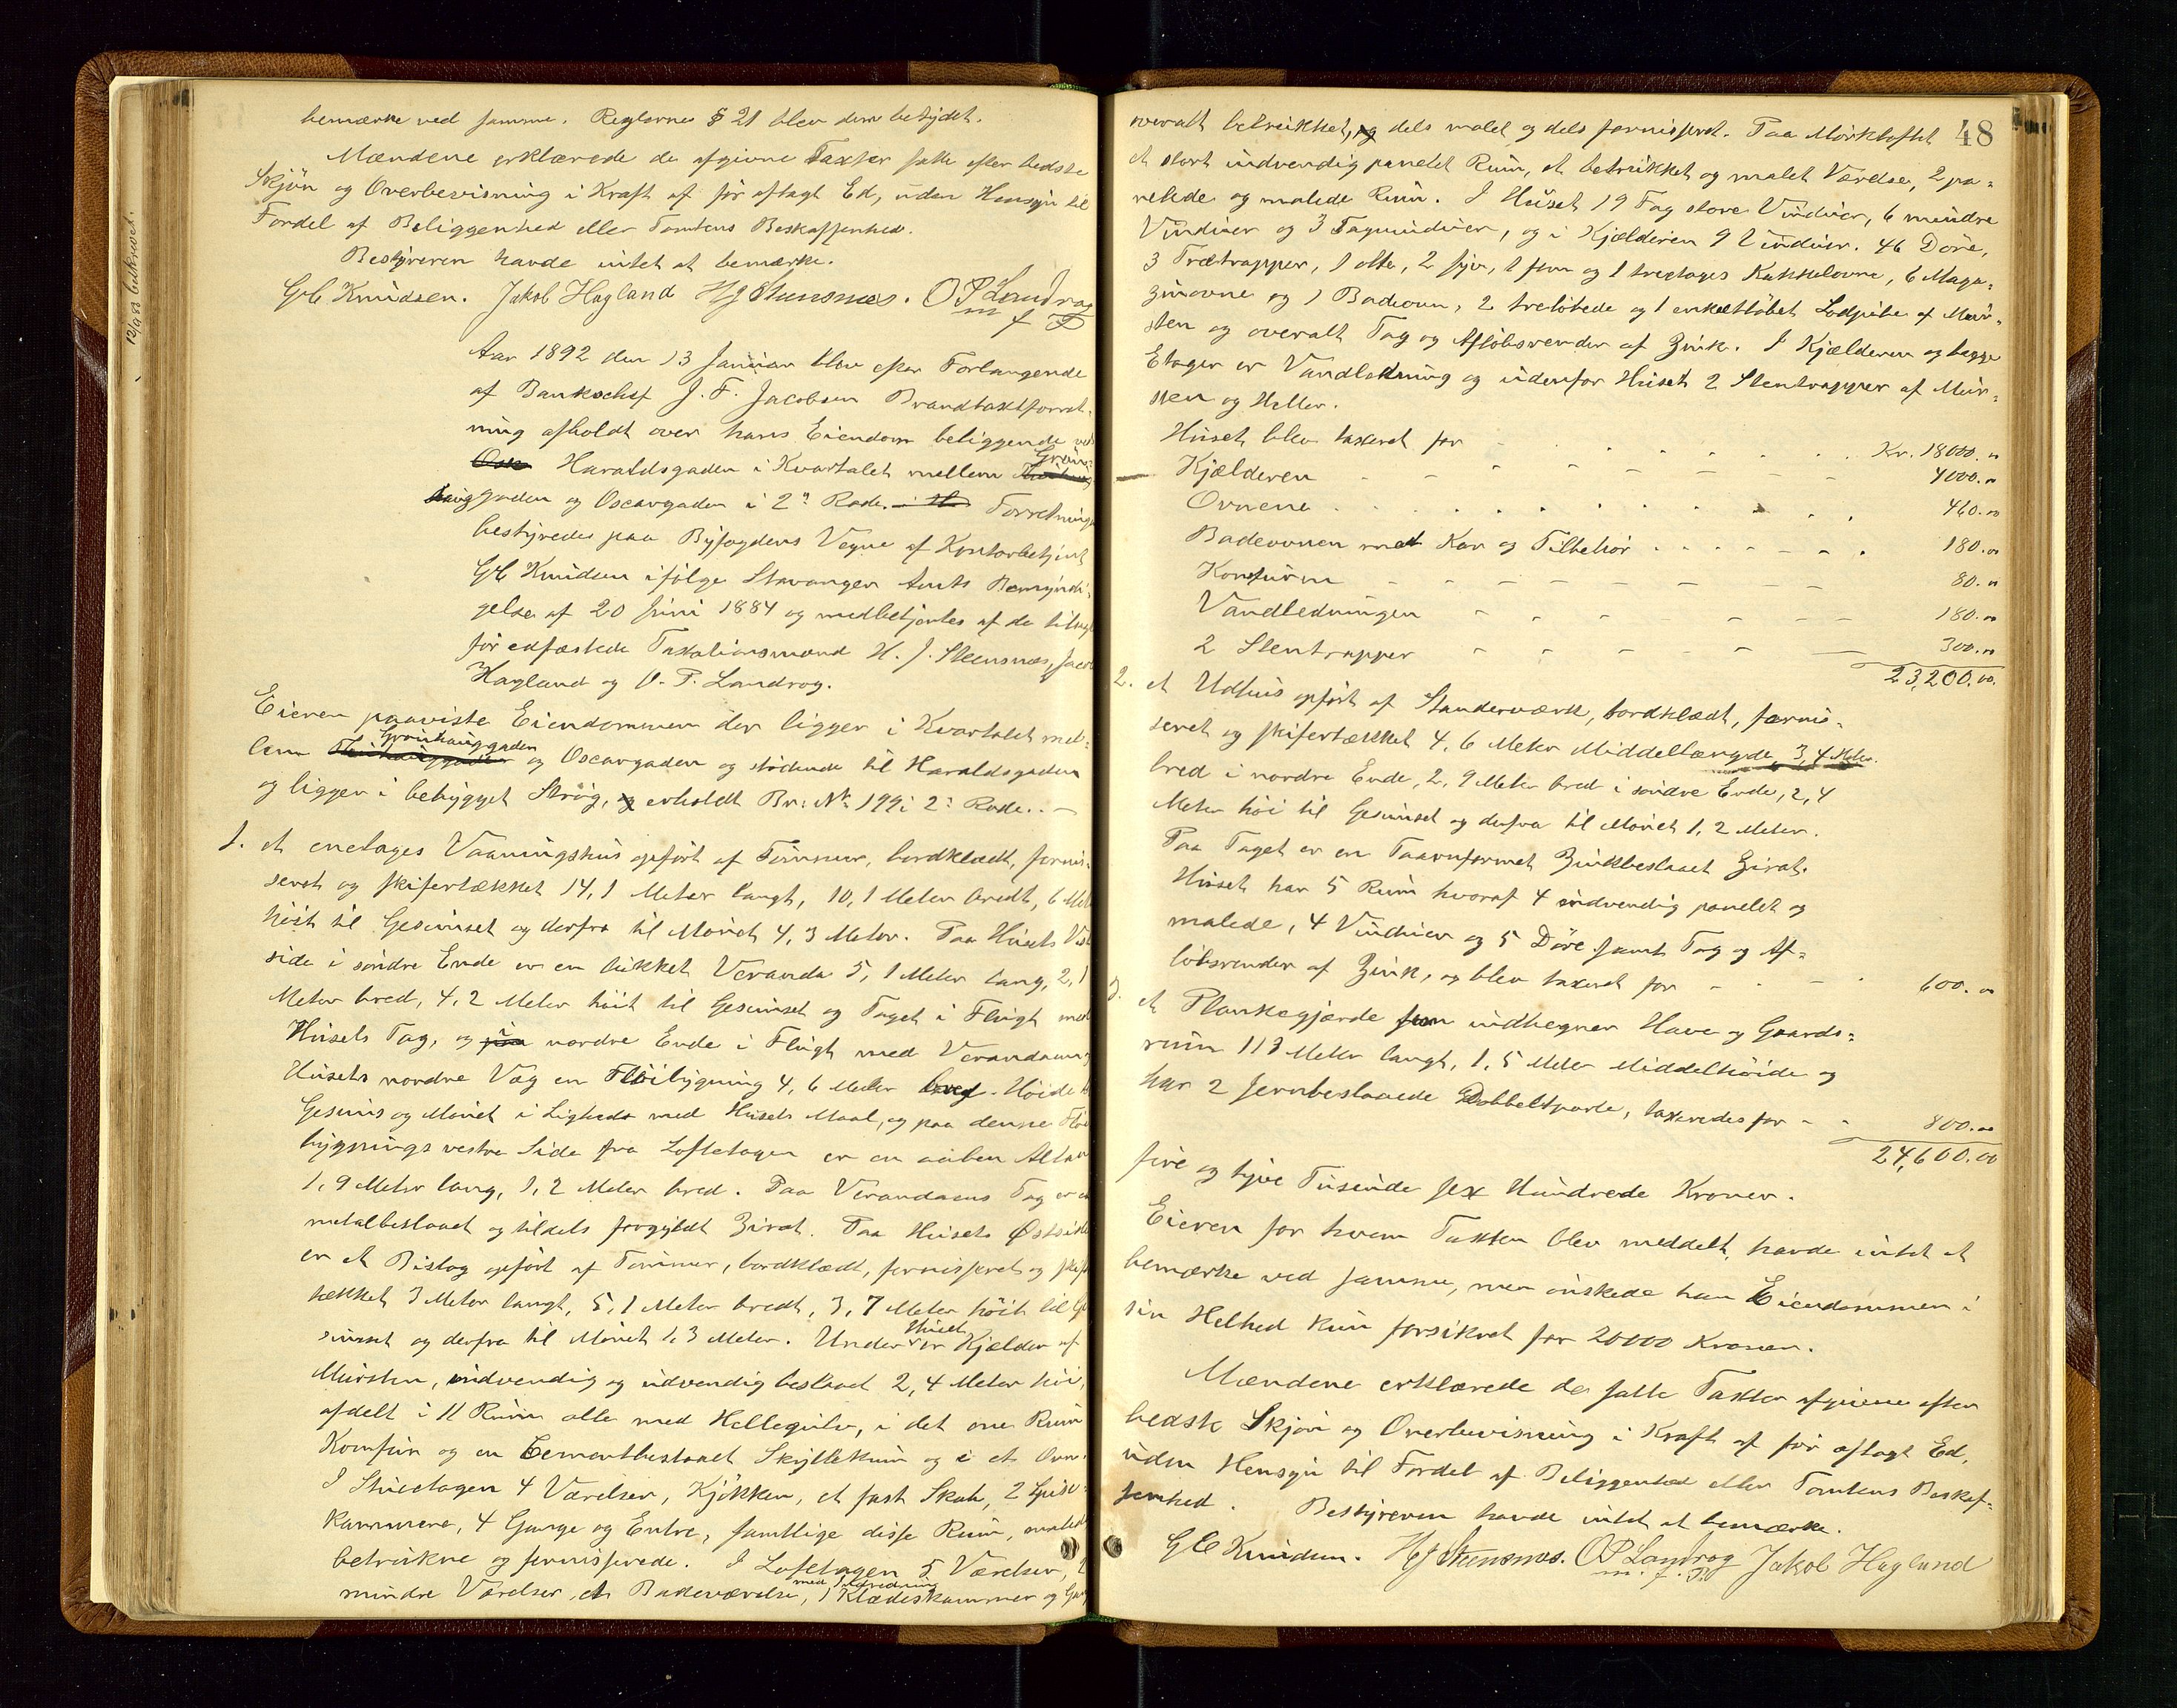 bemærke ved samme. Reglernes § 21 blev dem betydet.
Mændene erklærede de afgivne Taxter satte efter bedste
Skjön og Overbevisning i Kraft af för aflagt Ed, uden Hensyn til
Fordel af Beliggenhed eller Tomtens Beskaffenhed.
Bestyreren havde intet at bemærke.
GC Knudsen. Jakob Hagland HJ Steensnæs. OP Landrog
m f P
12/9 83 beskrevet.
Aar 1892 den 13 Januar blev efter Forlangende
af Bankchef J. F. Jacobsen Brandtaxtforret-
ning afholdt over hans Eiendom beliggende ved
Haraldsgaden i Kvartalet mellem Grön-
haug gaden og Oscargaden i 2n Rode. Forretningen
bestyredes paa Byfogdens Vegne af Kontorbetjent
GC Knudsen ifölge Stavanger Amts Bemyndi-
gelse af 20 Juni 1884 og medbetjentes af de
för edfæstede Taxationsmænd H. J. Steensnæs, Jacob
Hagland og O. P. Landrog.
Eieren paaviste Eiendommen der ligger i Kvartalet mel-
lem Grönhauggaden og Oscargaden og stödende til Haraldsgaden
og ligger i bebygget Strög, erholdt Br: No 199 i 2: Rode. —
1. et enetages Vaaningshus opfört af Tömmer, bordklædt, fernis-
seret og skifertækket 14,1 Meter langt, 10,1 Meter bredt, 6 Meter
höit til Gesimset og derfra til Mönet 4,3 Meter. Paa Husets Vest
side i söndre Ende er en lukket Veranda 5,1 Meter lang, 2,1
Meter bred, 4,2 Meter höit til Gesimset og Taget i Flugt med
Husets Tag, og nordre Ende i Flugt med Verandaens
Husets nordre Væg en Flöibygning 4,6 Meter bred. Höide til
Gesims og Mönet i Lighed med Husets Maal, og paa denne Flöi
bygnings vestre Side fra Loftetagen er en aaben Altan
1,9 Meter lang, 1,2 Meter bred. Paa Verandaens Tag er en
metalbeslaaet og tildels forgyldt Zirat. Paa Husets Østside
er et Bislag opfört af Tömmer, bordklædt, fernisseret og skifer
tækket 3 Meter langt, 5,1 Meter bredt, 3,7 Meter höit til Ge
simset og derfra til Mönet 1,3 Meter. Under Huset er Kjælder af
Mursten, indvendig og udvendig beslaaet 2,4 Meter höi,
afdelt i 11 Rum alle med Hellegulv, i det ene Rum
Komfur og en Cementbeslaaet Skyllekum og i et Ovn.
I Stuetagen 4 Værelser, Kjökken, et fast Skab, 2 Spise-
kammere, 4 Gange og Entre, samtlige disse Rum, malede
betrukne og fernisserede. I Loftetagen 5 Værelser, 2
mindre Værelser, et Badeværelse med Indredning, 1 Klædeskammer og Gang
48
overalt betrukket, dels malet og dels fernisseret. Paa Mörkloftet
et stort indvendig panelet Rum, et betrukket og malet Værelse, 2 pa-
nelede og malede Rum. I Huset 19 Fag store Vinduer, 6 mindre
Vinduer og 3 Tagvinduer, og i Kjælderen 9 Vinduer. 46 Döre,
3 Trætrapper, 1 otte, 2 syv, 1 fem og 1 treetages Kakkelovne, 6 Maga-
zinovne og 1 Badeovn, 2 trelöbede og 1 enkeltlöbet Lodpibe af Mur-
sten og overalt Tag og Aflöbsrender af Zink. I Kjælderen og begge
Etager er Vandledning og udenfor Huset 2 Stentrapper af Mur-
sten og Heller.
Huset blev taxeret for Kr. 18000. 00
Kjælderen 4000. 00
Ovnene 460. 00
Badeovnen med Kar og Tilbehör 180. 00
Komfuren 80. 00
Vandledningen 180. 00
2 Stentrapper 300. 00
23,200. 00.
2. et Udhus opfört af Standerværk, bordklædt, fernis-
seret og skifertækket 4,6 Meter Middellængde, 3,4 Meter
bred i nordre Ende, 2,9 Meter bred i söndre Ende, 2,4
Meter höi til Gesimset og derfra til Mönet 1,2 Meter.
Paa Taget er en Taarnformet Zinkbeslaaet Zirat.
Huset har 5 Rum hvoraf 4 indvendig panelet og
malede, 4 Vinduer og 5 Döre samt Tag og Af-
löbsrender af Zink, og blev taxeret for 600. 00
3. et Plankegjærde som indhegner Have og Gaards-
rum 113 Meter langt, 1,5 Meter Middelhöide og
har 2 Jernbeslaaede Dobbeltporte, taxeredes for 800. 00
24,600. 00
fire og tyve Tusinde sex Hundrede Kroner.
Eieren for hvem Taxten blev meddelt, havde intet at
bemærke ved samme, men önskede han Eiendommen i
sin Helhed kun forsikret for 20000 Kroner.
Mændene erklærede de satte Taxter afgivne efter
bedste Skjön og Overbevisning i Kraft af för aflagt Ed,
uden Hensyn til Fordel af Beliggenhed eller Tomtens Beskaf-
fenhed. Bestyreren havde intet at bemærke.
GC Knudsen. HJ Steensnæs. OP Landrog Jakob Hagland
m. f. P.